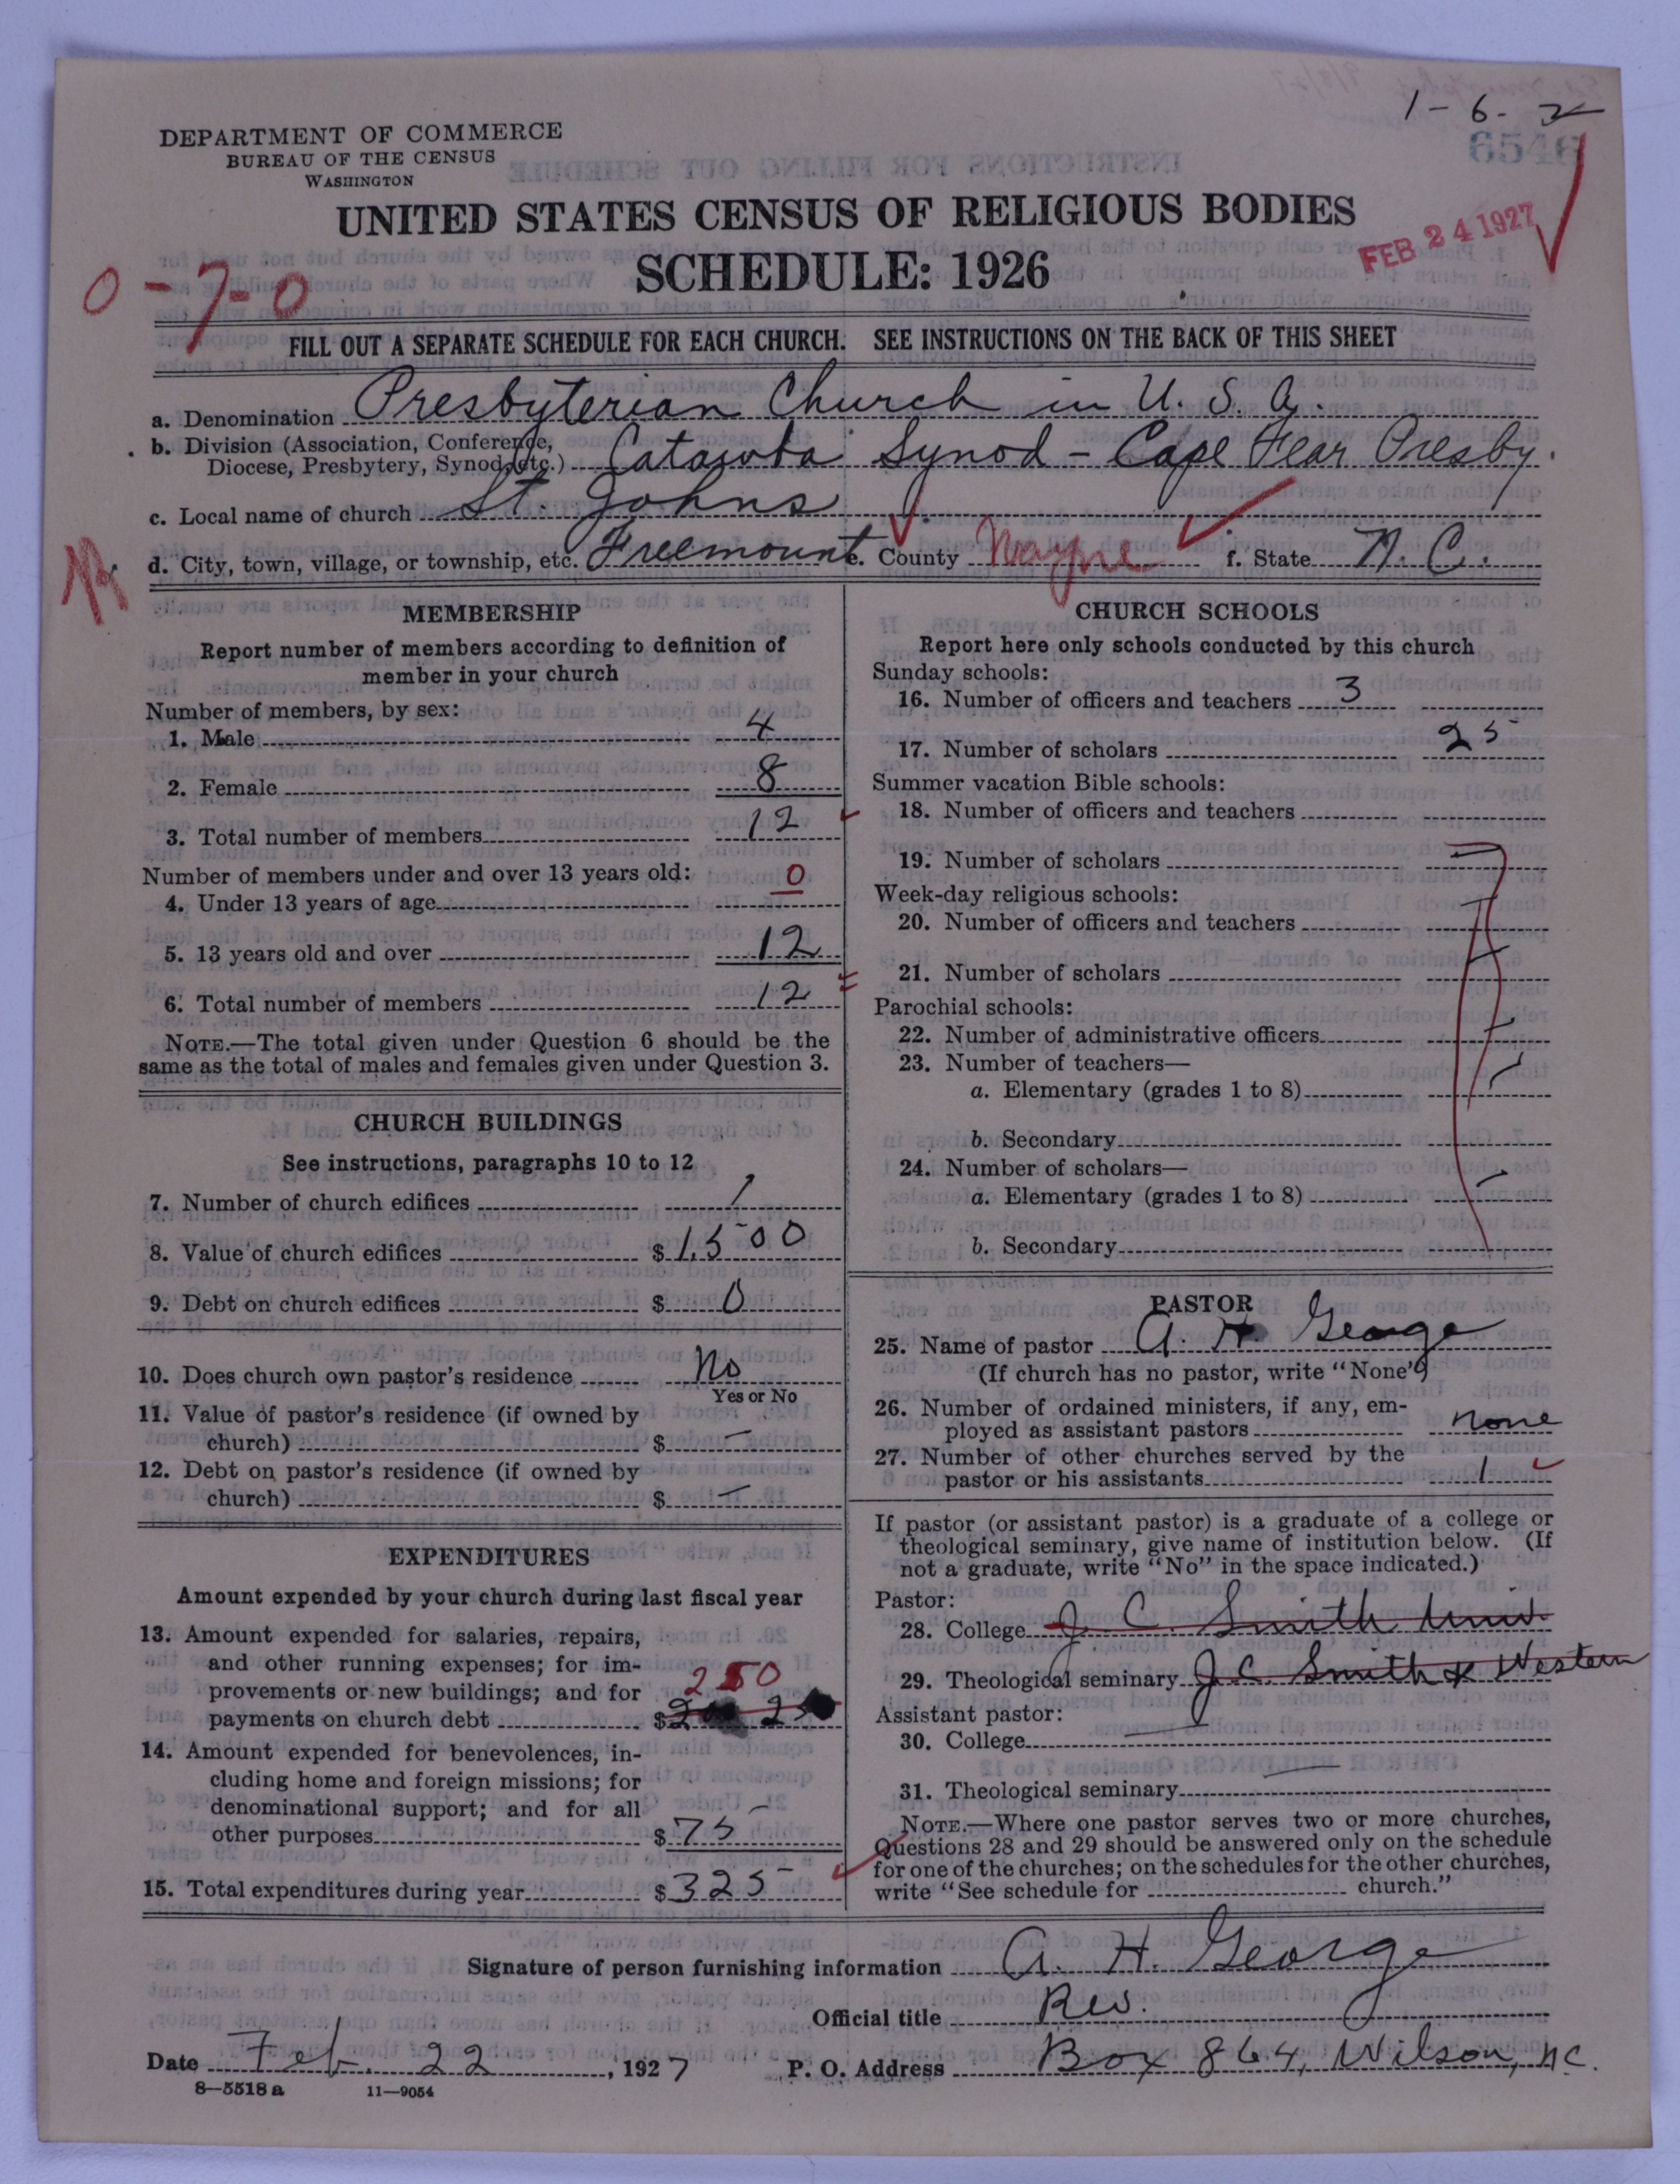 1-6-2
6546
DEPARTMENT OF COMMERCE
BUREAU OF THE CENSUS
WASHINGTON
UNITED STATES CENSUS OF RELIGIOUS BODIES
SCHEDULE: 1926
FEB 24 1927
0-7-0
FILL OUT A SEPARATE SCHEDULE FOR EACH CHURCH. SEE INSTRUCTIONS ON THE BACK OF THIS SHEET
a. Denomination Presbyterian Church in U. S. A.
b. Division (Association, Conference,
Diocese, Presbytery, Synod, etc.) Catawba Synod - Cape Fear Presby.
c. Local name of church St. Johns
d. City, town, village, or township, etc. Freemount e. County Wayne f. State N. C.
MEMBERSHIP
Report number of members according to definition of
member in your church
Number of members, by sex:
1. Male 4
2. Female 8
3. Total number of members 12
Number of members under and over 13 years old:
4. Under 13 years of age 0
5. 13 years old and over 12
6. Total number of members 12
NOTE.—The total given under Question 6 should be the
same as the total of males and females given under Question 3.
CHURCH BUILDINGS
See instructions, paragraphs 10 to 12
7. Number of church edifices 1
8. Value of church edifices $1500
9. Debt on church edifices $0
10. Does church own pastor's residence No
Yes or No
11. Value of pastor's residence (if owned by
church) $ —
12. Debt on pastor's residence (if owned by
church) $ —
EXPENDITURES
Amount expended by your church during last fiscal year
13. Amount expended for salaries, repairs,
and other running expenses; for im-
provements or new buildings; and for
250
payments on church debt $
14. Amount expended for benevolences, in-
cluding home and foreign missions; for
denominational support; and for all
other purposes $75
15. Total expenditures during year $325
CHURCH SCHOOLS
Report here only schools conducted by this church
Sunday schools:
16. Number of officers and teachers 3
17. Number of scholars 25
Summer vacation Bible schools:
18. Number of officers and teachers
19. Number of scholars
Week-day religious schools:
20. Number of officers and teachers
21. Number of scholars
Parochial schools:
22. Number of administrative officers
23. Number of teachers—
a. Elementary (grades 1 to 8)
b. Secondary
24. Number of scholars—
a. Elementary (grades 1 to 8)
b. Secondary
PASTOR
25. Name of pastor A. H. George
(If church has no pastor, write "None")
26. Number of ordained ministers, if any, em-
ployed as assistant pastors none
27. Number of other churches served by the
pastor or his assistants 1
If pastor (or assistant pastor) is a graduate of a college or
theological seminary, give name of institution below. (If
not a graduate, write "No" in the space indicated.)
Pastor:
28. College J. C. Smith Univ.
29. Theological seminary J. C. Smith & Western
Assistant pastor:
30. College
31. Theological seminary
NOTE.—Where one pastor serves two or more churches,
Questions 28 and 29 should be answered only on the schedule
for one of the churches; on the schedules for the other churches,
write "See schedule for church."
Signature of person furnishing information A. H. George
Official title Rev.
Date Feb. 22, 1927 P. O. Address Box 864, Wilson, N.C.
8—5518a 11—9054